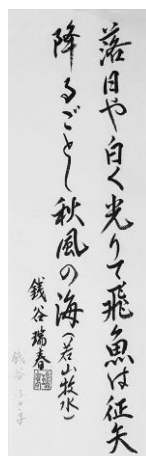 落日や白く光りて飛魚は征矢
降るごとし秋風の海(若山牧水)
銭谷瑞春